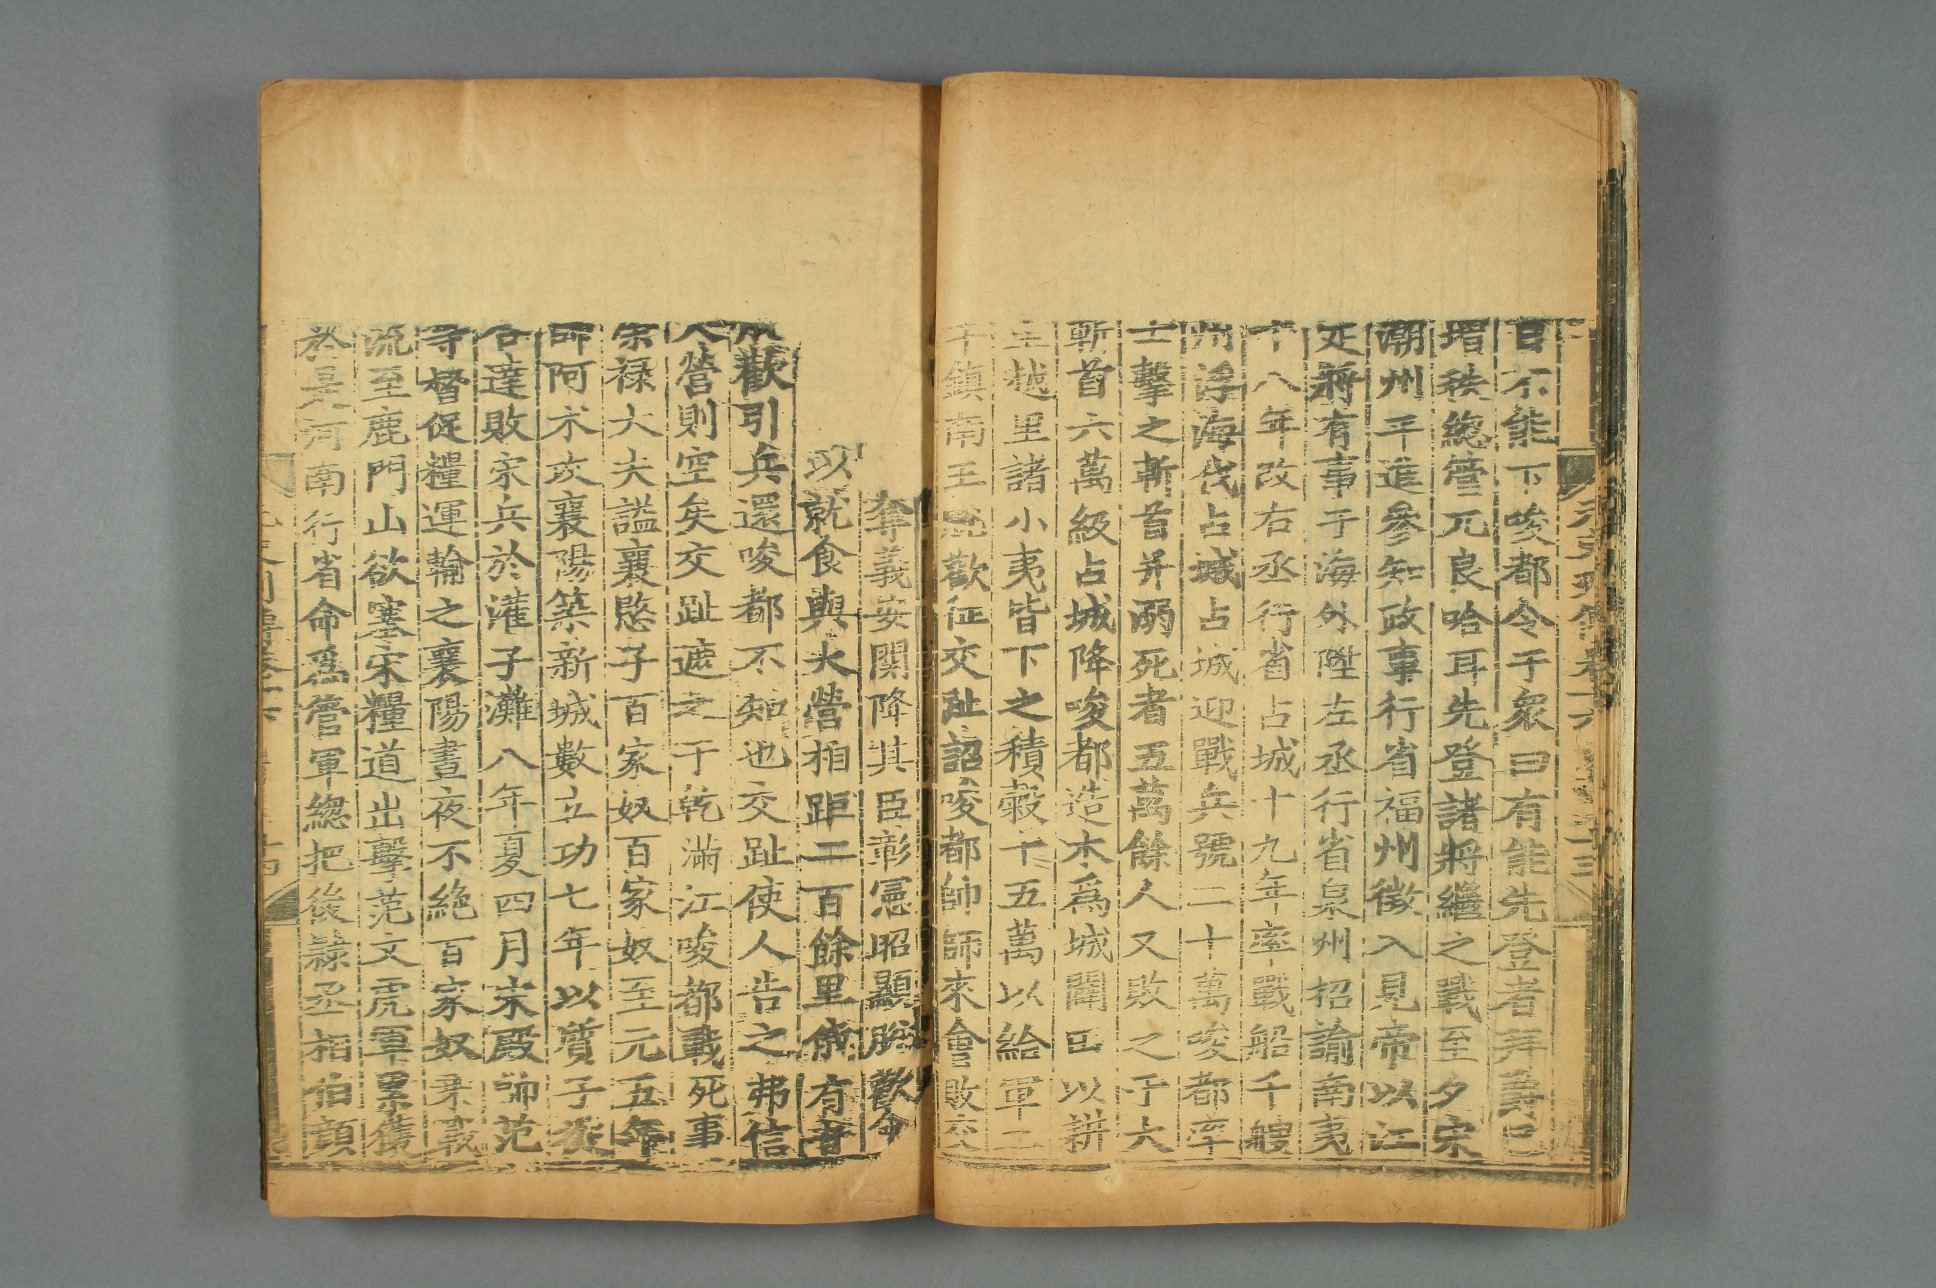 日不能下唆都令于衆曰有能先登者
壻秩總管兀良哈耳先登諸將繼之戰至夕宋
潮州平進參知政事行省福州徵入見帝以江
定將有事于海外陞左丞行省泉州招諭南夷
十八年改右丞行省占城十九年率戰船千艘
州浮海伐占城占城迎戰兵號二十萬唆都率
士擊之斬首并溺死者五萬餘人又敗之于大
斬首六萬級占城降唆都造木爲城闢田以耕
里越里諸小夷皆下之積穀十五萬以給軍二
年鎮南王脫歡征交趾詔唆都帥師來會敗交
奪義安關降其臣彰憲昭顯脫歡令
以就食與大營相距二百餘里俄有
歡引兵還唆都不知也交趾使人告之弗信
大營則空矣交趾遮之于乾滿江唆都戰死事
榮禄大夫謚襄愍子百家奴百家奴至元五年
帥阿术攻襄陽築新城數立功七年以質子從
合達敗宋兵於灌子灘八年夏四月宋殿帥范
等督促糧運輸之襄陽晝夜不絶百家奴乗戰
流至鹿門山欲塞宋糧道出擊范文虎軍累獲
於是河南行省命爲管軍總把後隸丞相伯顏